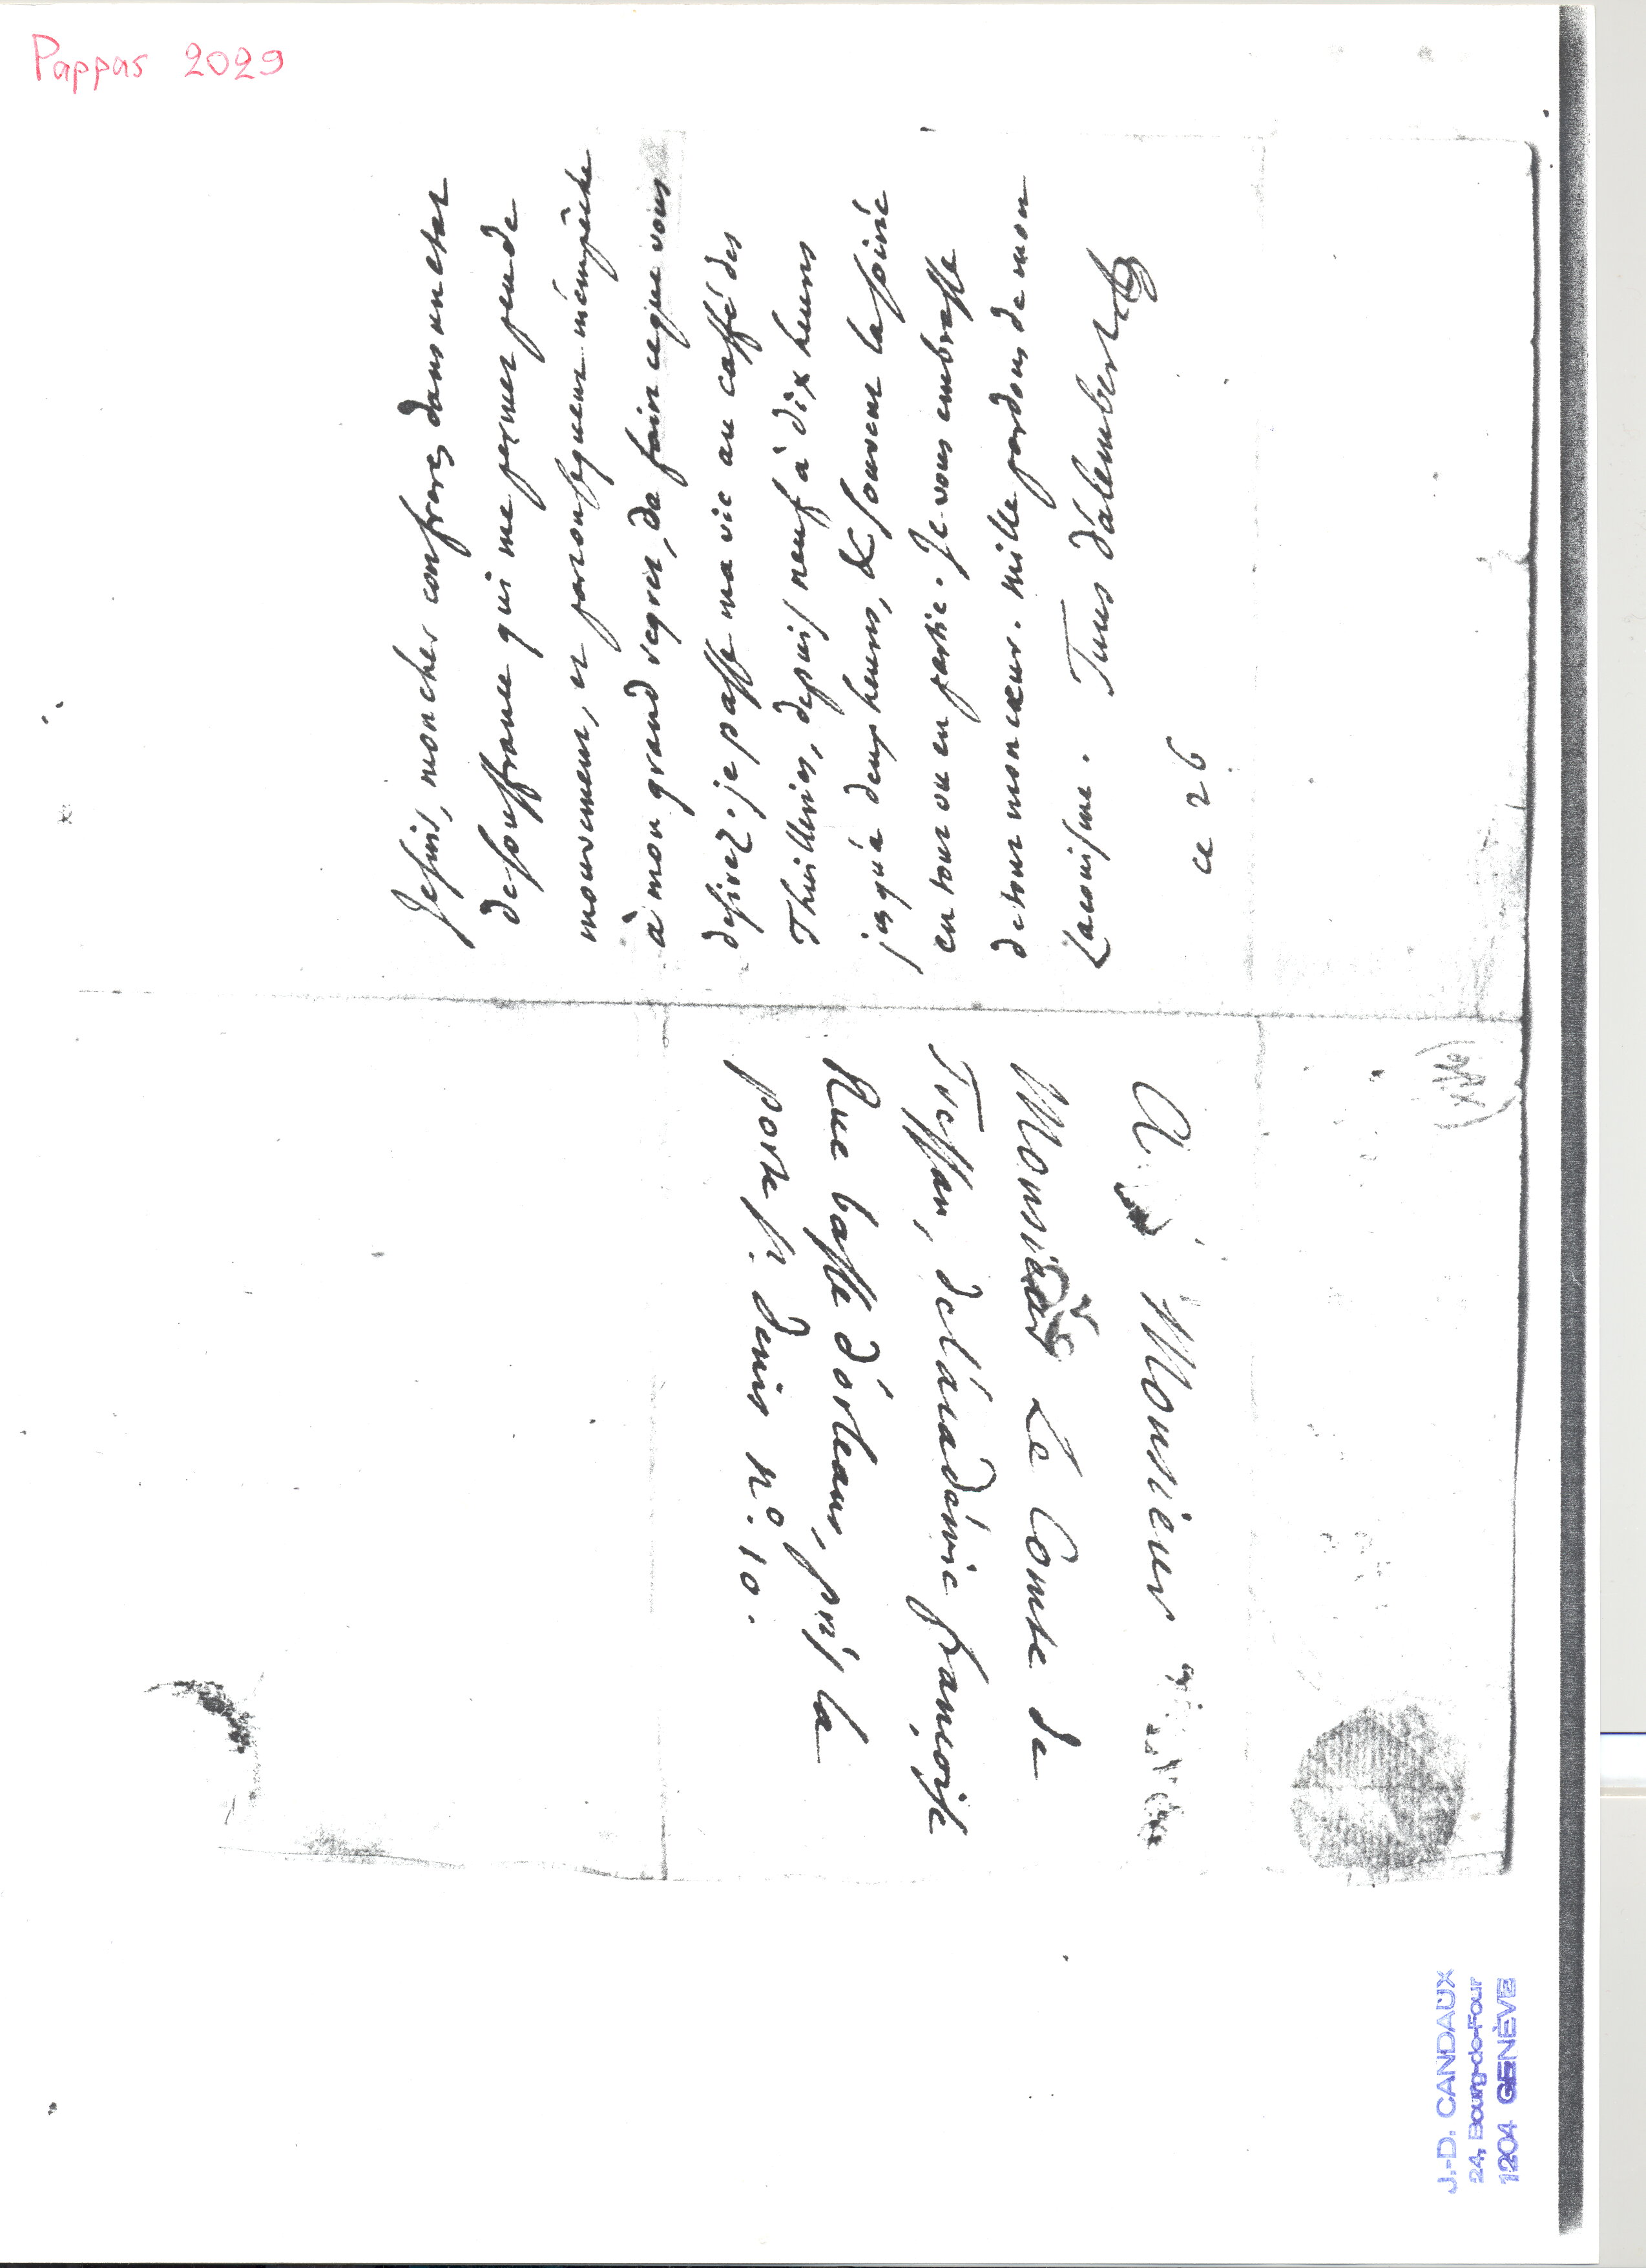 Pappas 2029
Je suis, mon cher confrere, dans un etat
de souffrance qui me permet peu de
mouvement, et par consequent m'empêche
à mon grand regret, de faire ce que vous
desirez. je passe ma vie au caffé des
Thuilleries, depuis neuf à dix heures
jusqu'à deux heures, & souvent la soirée
en tout ou en partie. Je vous embrasse
de tout mon cœur. mille pardons de mon
Laconisme. Tuus d'alembert
ce 26
A Monsieur
Monsieur Le Comte de
Tressan, de l'académie françoise
Rue basse d'orleans, près la
porte st. denis n°. 10.
J.-D. CANDAUX
24, Bourg-de-Four
1204 GENÈVE